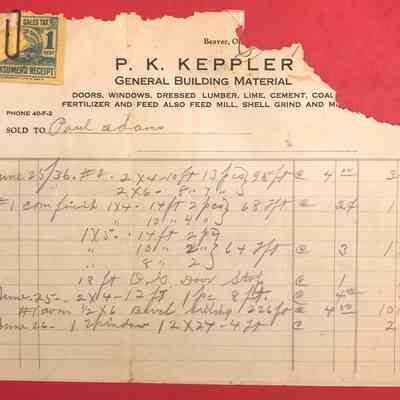 SALES TAX
1 CENT
CONSUMER'S RECEIPT
Beaver, O
P. K. KEPPLER
GENERAL BUILDING MATERIAL
DOORS, WINDOWS, DRESSED LUMBER, LIME, CEMENT, COAL
FERTILIZER AND FEED ALSO FEED MILL, SHELL GRIND AND M
PHONE 40-F-2
SOLD TO Paul Adams
June 25/36. #2 - 2x4-10ft 13 pcs 98ft @ 4 00 3
" 2x6- 8/" 2"
#1 com finish 1x4- 14ft 2 pcs 68 2ft @ 24 1
" 10" 4"
1x5- 14ft 2 pcs
" 10" 2" 64 2ft @ 3 1
" 8" 2"
18 ft O.G Door Stop @ 1
June 25- 2x4-12ft 1 pc 8ft. @ 4 00
#1 com ½x6 Bevel siding 226ft @ 4 50 10
June 26- 1 window 12x24-4 lt @ 2